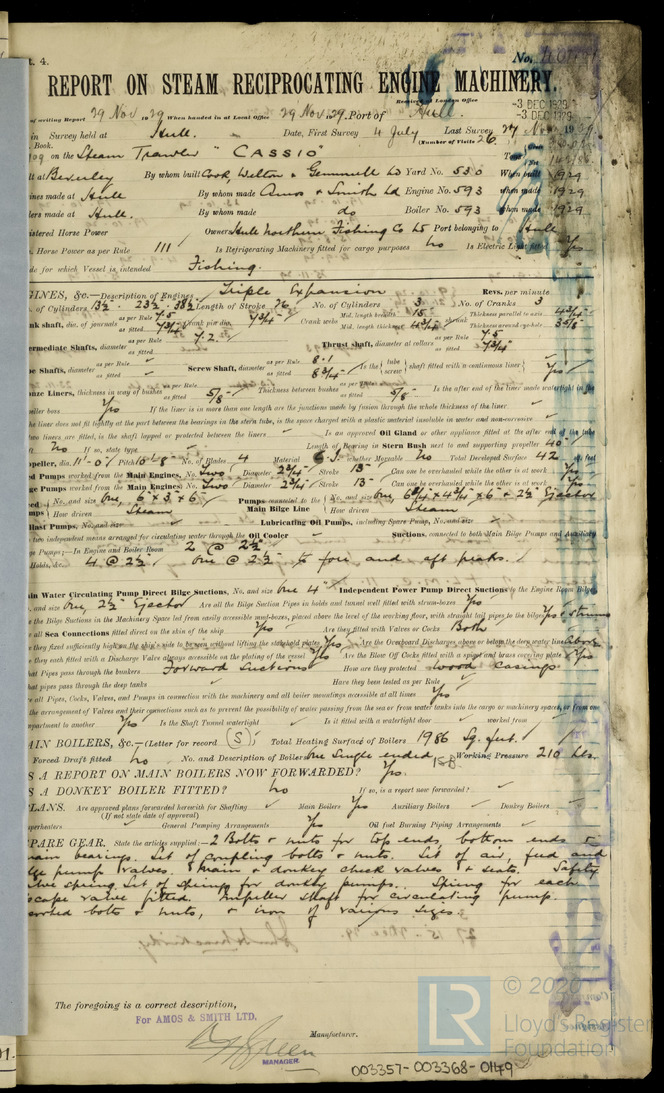 t. 4.
No.
REPORT ON STEAM RECIPROCATING ENGINE MACHINERY.
Received at London Office
-3 DEC 1929
of writing Report 29 Nov 1929 When handed in at Local Office 29 Nov 29. Port of Hull.
in Survey held at Hull. Date, First Survey 4 July Last Survey 27 Nov 1929
Book. (Number of Visits 26
on the Steam Trawler "CASSIO"
at Beverley By whom built Cook, Welton & Gemmell Ld Yard No. 530 When built 1929
ines made at Hull By whom made Amos & Smith Ld Engine No. 593 when made 1929
lers made at Hull. By whom made do Boiler No. 593 when made 1929
istered Horse Power Owners Hull Northern Fishing Co Ld Port belonging to Hull
. Horse Power as per Rule 111 Is Refrigerating Machinery fitted for cargo purposes No Is Electric Light fitted Yes
de for which Vessel is intended Fishing.
INES, &c.—Description of Engines Triple Expansion Revs. per minute
. of Cylinders 13½ - 23½ - 38½ Length of Stroke 26 No. of Cylinders 3 No. of Cranks 3
nk shaft, dia. of journals as per Rule 7.5 as fitted 7¾ Crank pin dia. 7¾ Crank webs Mid. length breadth 15 Mid. length thickness 4¾ shrunk Thickness parallel to axis 4¾ Thickness around eye-hole 3⅝
ermediate Shafts, diameter as per Rule 7.2 as fitted Thrust shaft, diameter at collars as per Rule 7.5 as fitted 7¾
be Shafts, diameter as per Rule as fitted Screw Shaft, diameter as per Rule 8.1 as fitted 8¾ Is the tube screw shaft fitted with a continuous liner Yes
nze Liners, thickness in way of bushes as per Rule as fitted ⅝ Thickness between bushes as per Rule as fitted ⅝ Is the after end of the liner made watertight in the
eller boss Yes If the liner is in more than one length are the junctions made by fusion through the whole thickness of the liner
he liner does not fit tightly at the part between the bearings in the stern tube, is the space charged with a plastic material insoluble in water and non-corrosive
two liners are fitted, is the shaft lapped or protected between the liners Is an approved Oil Gland or other appliance fitted at the after end of the tube
no If so, state type Length of Bearing in Stern Bush next to and supporting propeller 40
peller, dia. 11'-0" Pitch 10'-8 No. of Blades 4 Material C.I. whether Moveable No Total Developed Surface 42
ed Pumps worked from the Main Engines, No. Two Diameter 2¾ Stroke 13 Can one be overhauled while the other is at work Yes
ge Pumps worked from the Main Engines, No. Two Diameter 2¾ Stroke 13 Can one be overhauled while the other is at work Yes
ed No. and size One, 6 x 3 x 6 Pumps connected to the Main Bilge Line No. and size One 6¾ x 4¾ x 6 & 2½ Ejector
mps How driven Steam How driven Steam
llast Pumps, No. and size Lubricating Oil Pumps, including Spare Pump, No. and size
two independent means arranged for circulating water through the Oil Cooler Suctions, connected to both Main Bilge Pumps and Auxiliary
ge Pumps;—In Engine and Boiler Room 2 @ 2½
Holds, &c. 4 @ 2½ One @ 2½ to fore and aft peaks.
in Water Circulating Pump Direct Bilge Suctions, No. and size One 4" Independent Power Pump Direct Suctions to the Engine Room Bilges
, and size One 2½ Ejector Are all the Bilge Suction Pipes in holds and tunnel well fitted with strum-boxes Yes
the Bilge Suctions in the Machinery Space led from easily accessible mud-boxes, placed above the level of the working floor, with straight tail pipes to the bilges Yes & strums
all Sea Connections fitted direct on the skin of the ship Yes Are they fitted with Valves or Cocks Both
they fixed sufficiently high on the ship's side to be seen without lifting the stokehold plates Yes Are the Overboard Discharges above or below the deep water line Above
they each fitted with a Discharge Valve always accessible on the plating of the vessel Yes Are the Blow Off Cocks fitted with a spigot and brass covering plate Yes
hat Pipes pass through the bunkers Forward Suctions How are they protected wood casings
hat pipes pass through the deep tanks Have they been tested as per Rule
re all Pipes, Cocks, Valves, and Pumps in connection with the machinery and all boiler mountings accessible at all times Yes
the arrangement of Valves and their connections such as to prevent the possibility of water passing from the sea or from water tanks into the cargo or machinery spaces, or from one
mpartment to another Yes Is the Shaft Tunnel watertight Is it fitted with a watertight door worked from
AIN BOILERS, &c.—(Letter for record (S)) Total Heating Surface of Boilers 1986 Sq. feet.
Forced Draft fitted No No. and Description of Boilers One Single ended Working Pressure 210 lbs.
S A REPORT ON MAIN BOILERS NOW FORWARDED? Yes.
S A DONKEY BOILER FITTED? No If so, is a report now forwarded?
LANS. Are approved plans forwarded herewith for Shafting Main Boilers Yes Auxiliary Boilers Donkey Boilers
(If not state date of approval)
perheaters General Pumping Arrangements Yes Oil fuel Burning Piping Arrangements
PARE GEAR. State the articles supplied:—2 Bolts & nuts for top ends, bottom ends &
main bearings. Set of coupling bolts & nuts. Set of air, feed and
lge pump valves. Main & donkey check valves & seats. Safety
lve spring. Set of springs for donkey pumps. Spring for each
scape valve fitted. Impeller shaft for circulating pump.
ssorted bolts & nuts, & iron of various sizes.
The foregoing is a correct description,
For AMOS & SMITH LTD.
Manufacturer.
MANAGER
© 2020
Lloyd's Register
Foundation
LR
003357-003368-0149